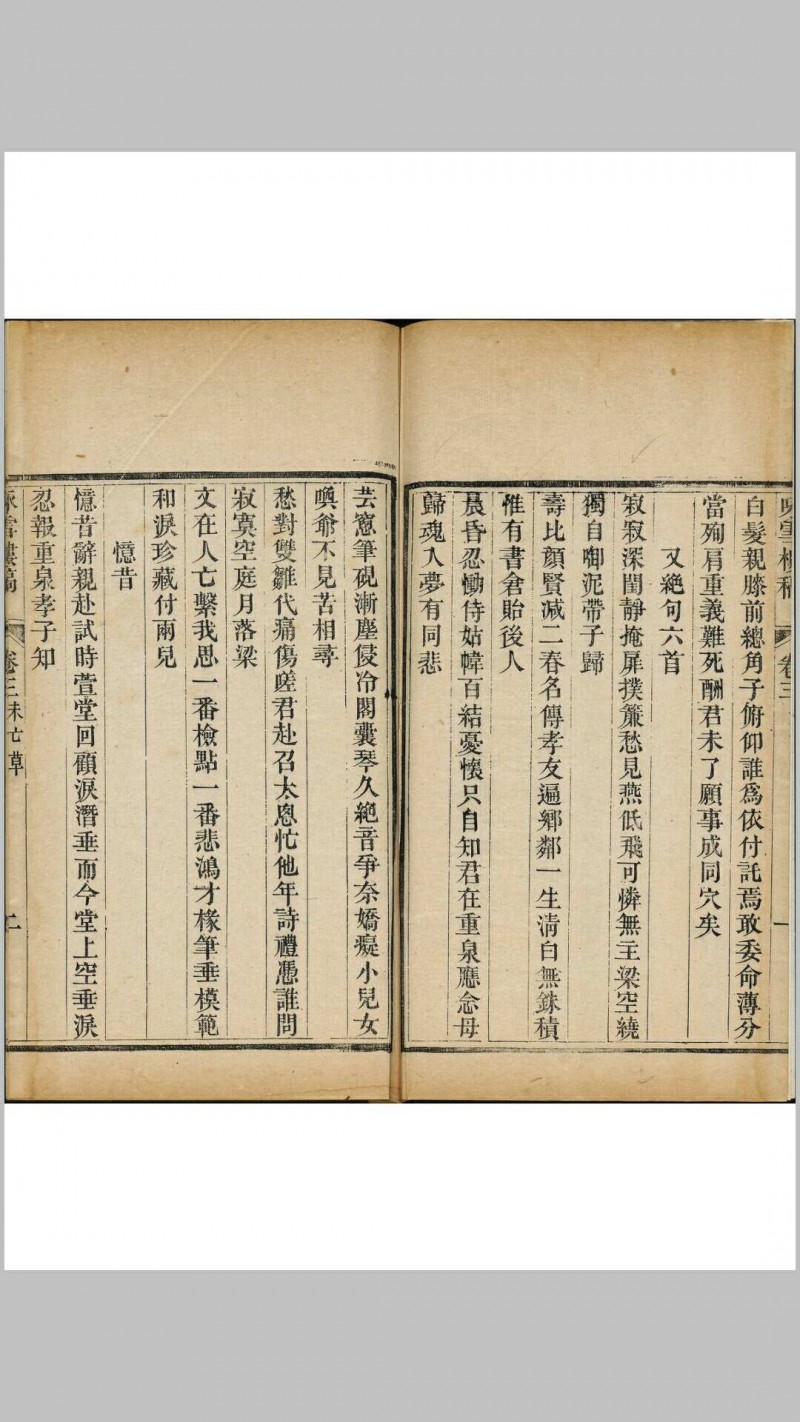 白髮親膝前總角子俯仰誰爲依付託焉敢委命薄分
當殉肩重義難死酬君未了願事成同穴矣
又絕句六首
寂寂深閨靜掩扉撲簾愁見燕低飛可憐無主梁空繞
獨自啣泥帶子歸
壽比顏賢減二春名傳孝友遍鄉鄰一生淸白無銖積
惟有書倉貽後人
晨昏忍慟侍姑幃百結憂懷只自知君在重泉應念母
歸魂入夢有同悲
芸窻筆硯漸塵侵冷閣囊琴久絕音爭奈嬌癡小兒女
喚爺不見苦相尋
愁對雙雛代痛傷嗟君赴召太悤忙他年詩禮憑誰問
寂寞空庭月落梁
文在人亡繫我思一番檢點一番悲鴻才椽筆垂模範
和淚珍藏付兩兒
憶昔
憶昔辭親赴試時萱堂回顧淚潛垂而今堂上空垂淚
忍報重泉孝子知
卷三未亡草
二
卷三
一